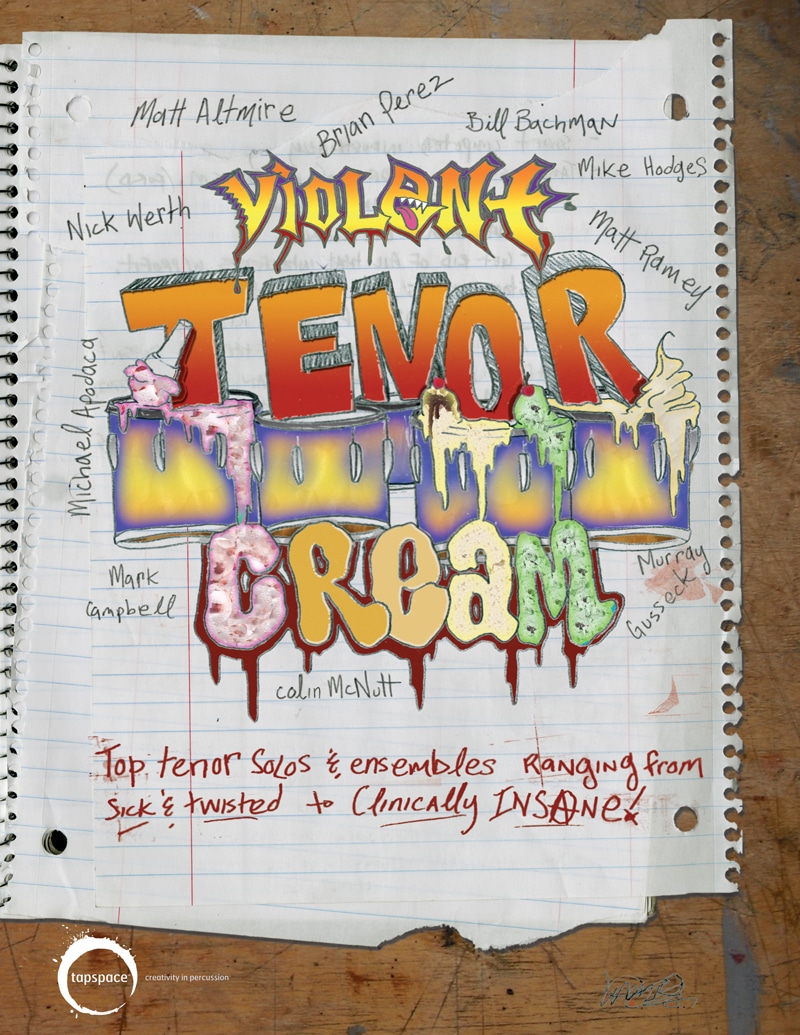 Matt Altmire
Brian Perez
Bill Bachman
Mike Hodges
Nick Werth
Matt Ramey
VIOLENT
TENOR
Michael Apadaca
CReaM
Mark
Campbell
Murray
Gusseck
colin McNutt
Top tenor Solos & ensembles Ranging from
Sick & twisted to Clinically INSANe!
tapspace
creativity in percussion